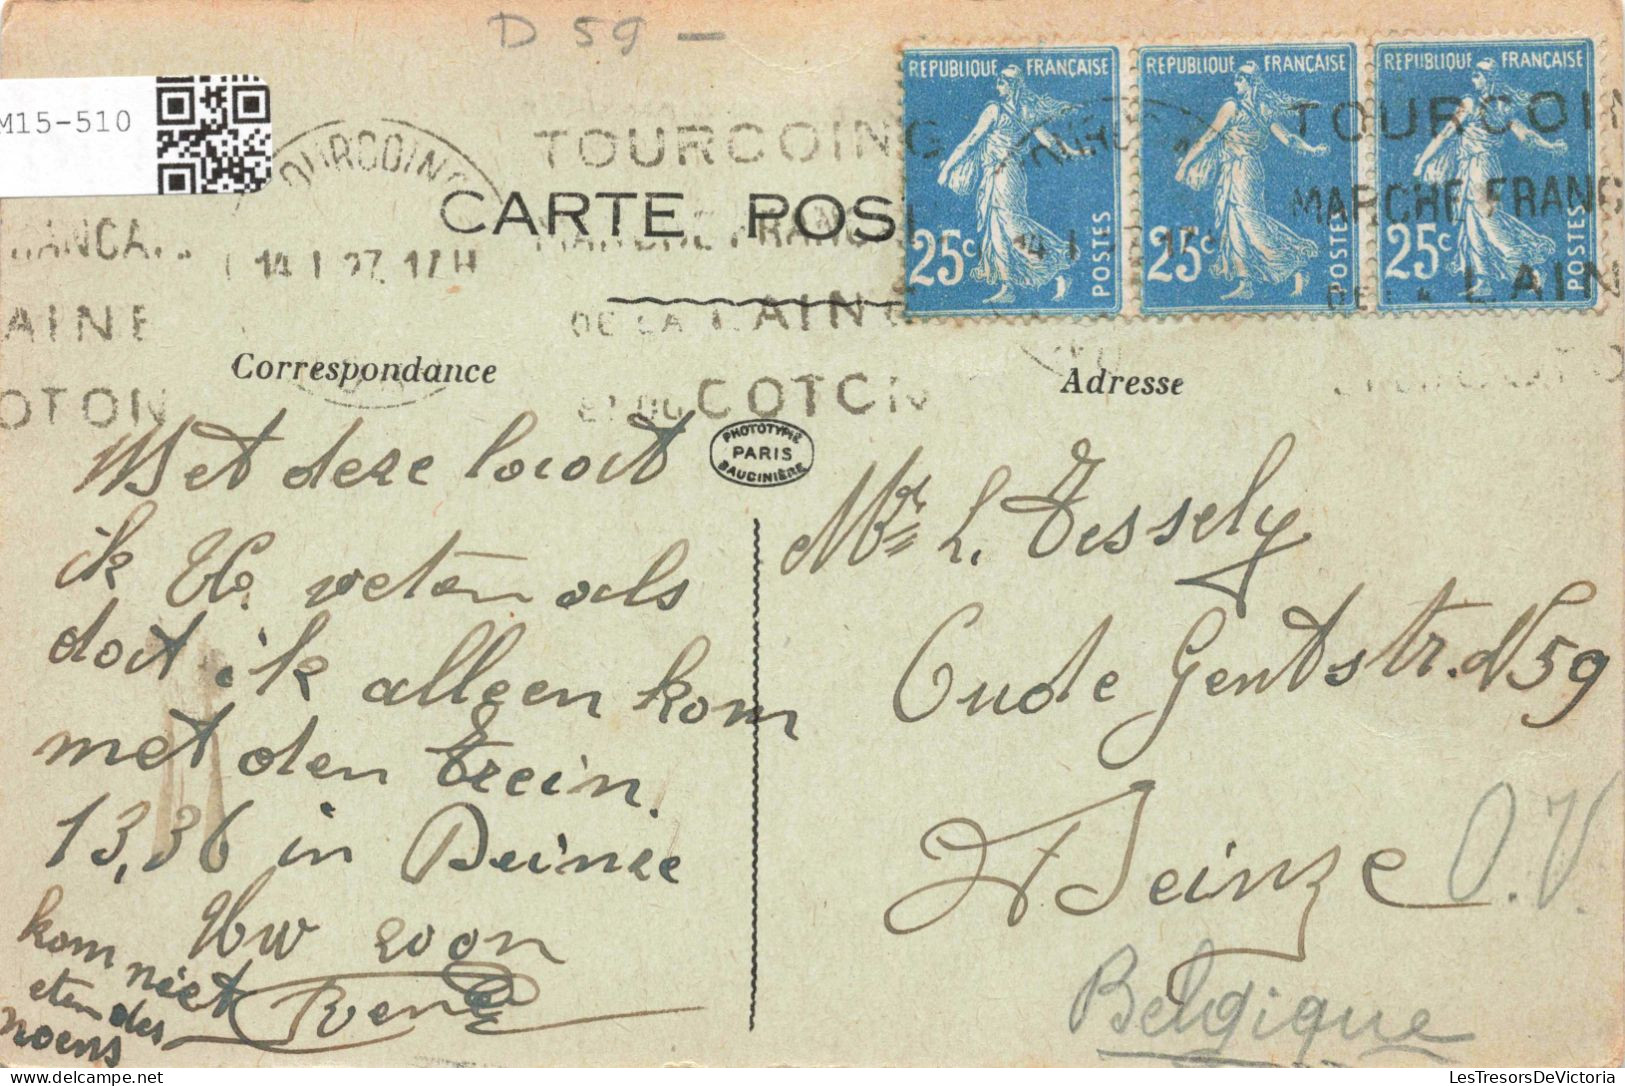 D 59 —
M15-510
TOURCOING
14.1.27 17H
CARTE POS
TOURCOING
MARCHE FRANC
DE LA LAIN
ET DU COTON
RÉPUBLIQUE FRANÇAISE
25c POSTES
RÉPUBLIQUE FRANÇAISE
25c POSTES
RÉPUBLIQUE FRANÇAISE
25c POSTES
TOURCOIN
MARCHE FRANÇ
DE LA LAIN
Correspondance
Adresse
PHOTOTYPIE
PARIS
BAUDINIÈRE
Met deze laat
ik U. weten als
dat ik alleen kom
met den trein
13,36 in Deinze
Uw zoon
René
kom niet
eten des
noens
Mr L. Tessely
Oude Gentstr. N 59
Deinze O.V.
Belgique
LesTresorsDeVictoria